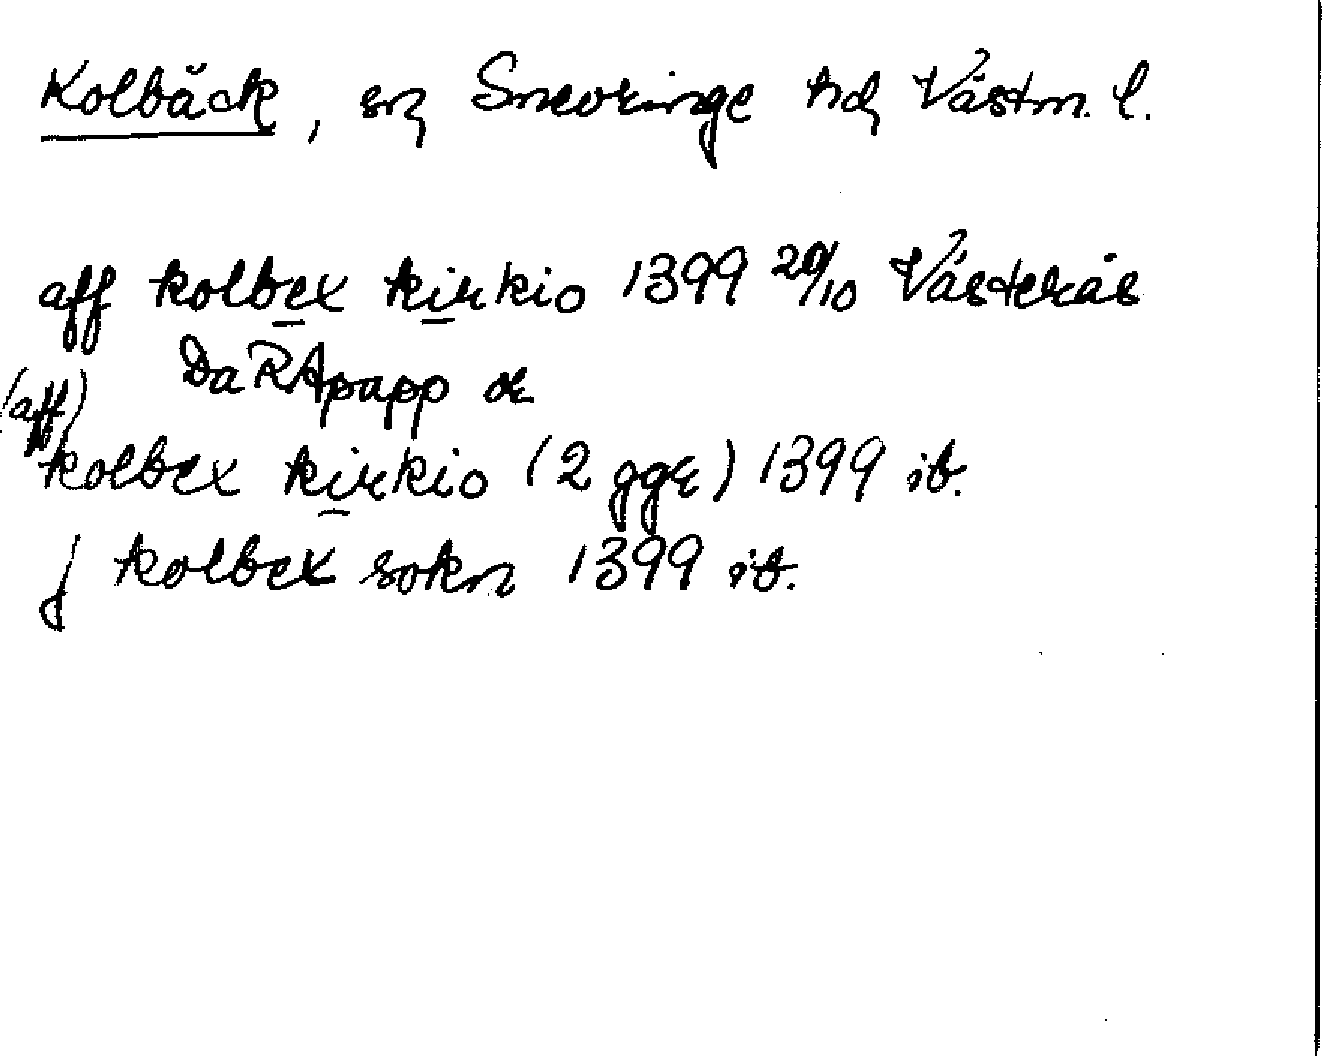 Kolbäck, sn Snevringe hd Västm. l.
aff kolbex kirkio 1399 20/10 Västerås
DaRApapp or
(aff)
kolbex kirkio (2 ggr) 1399 ib.
j kolbex sokn 1399 ib.